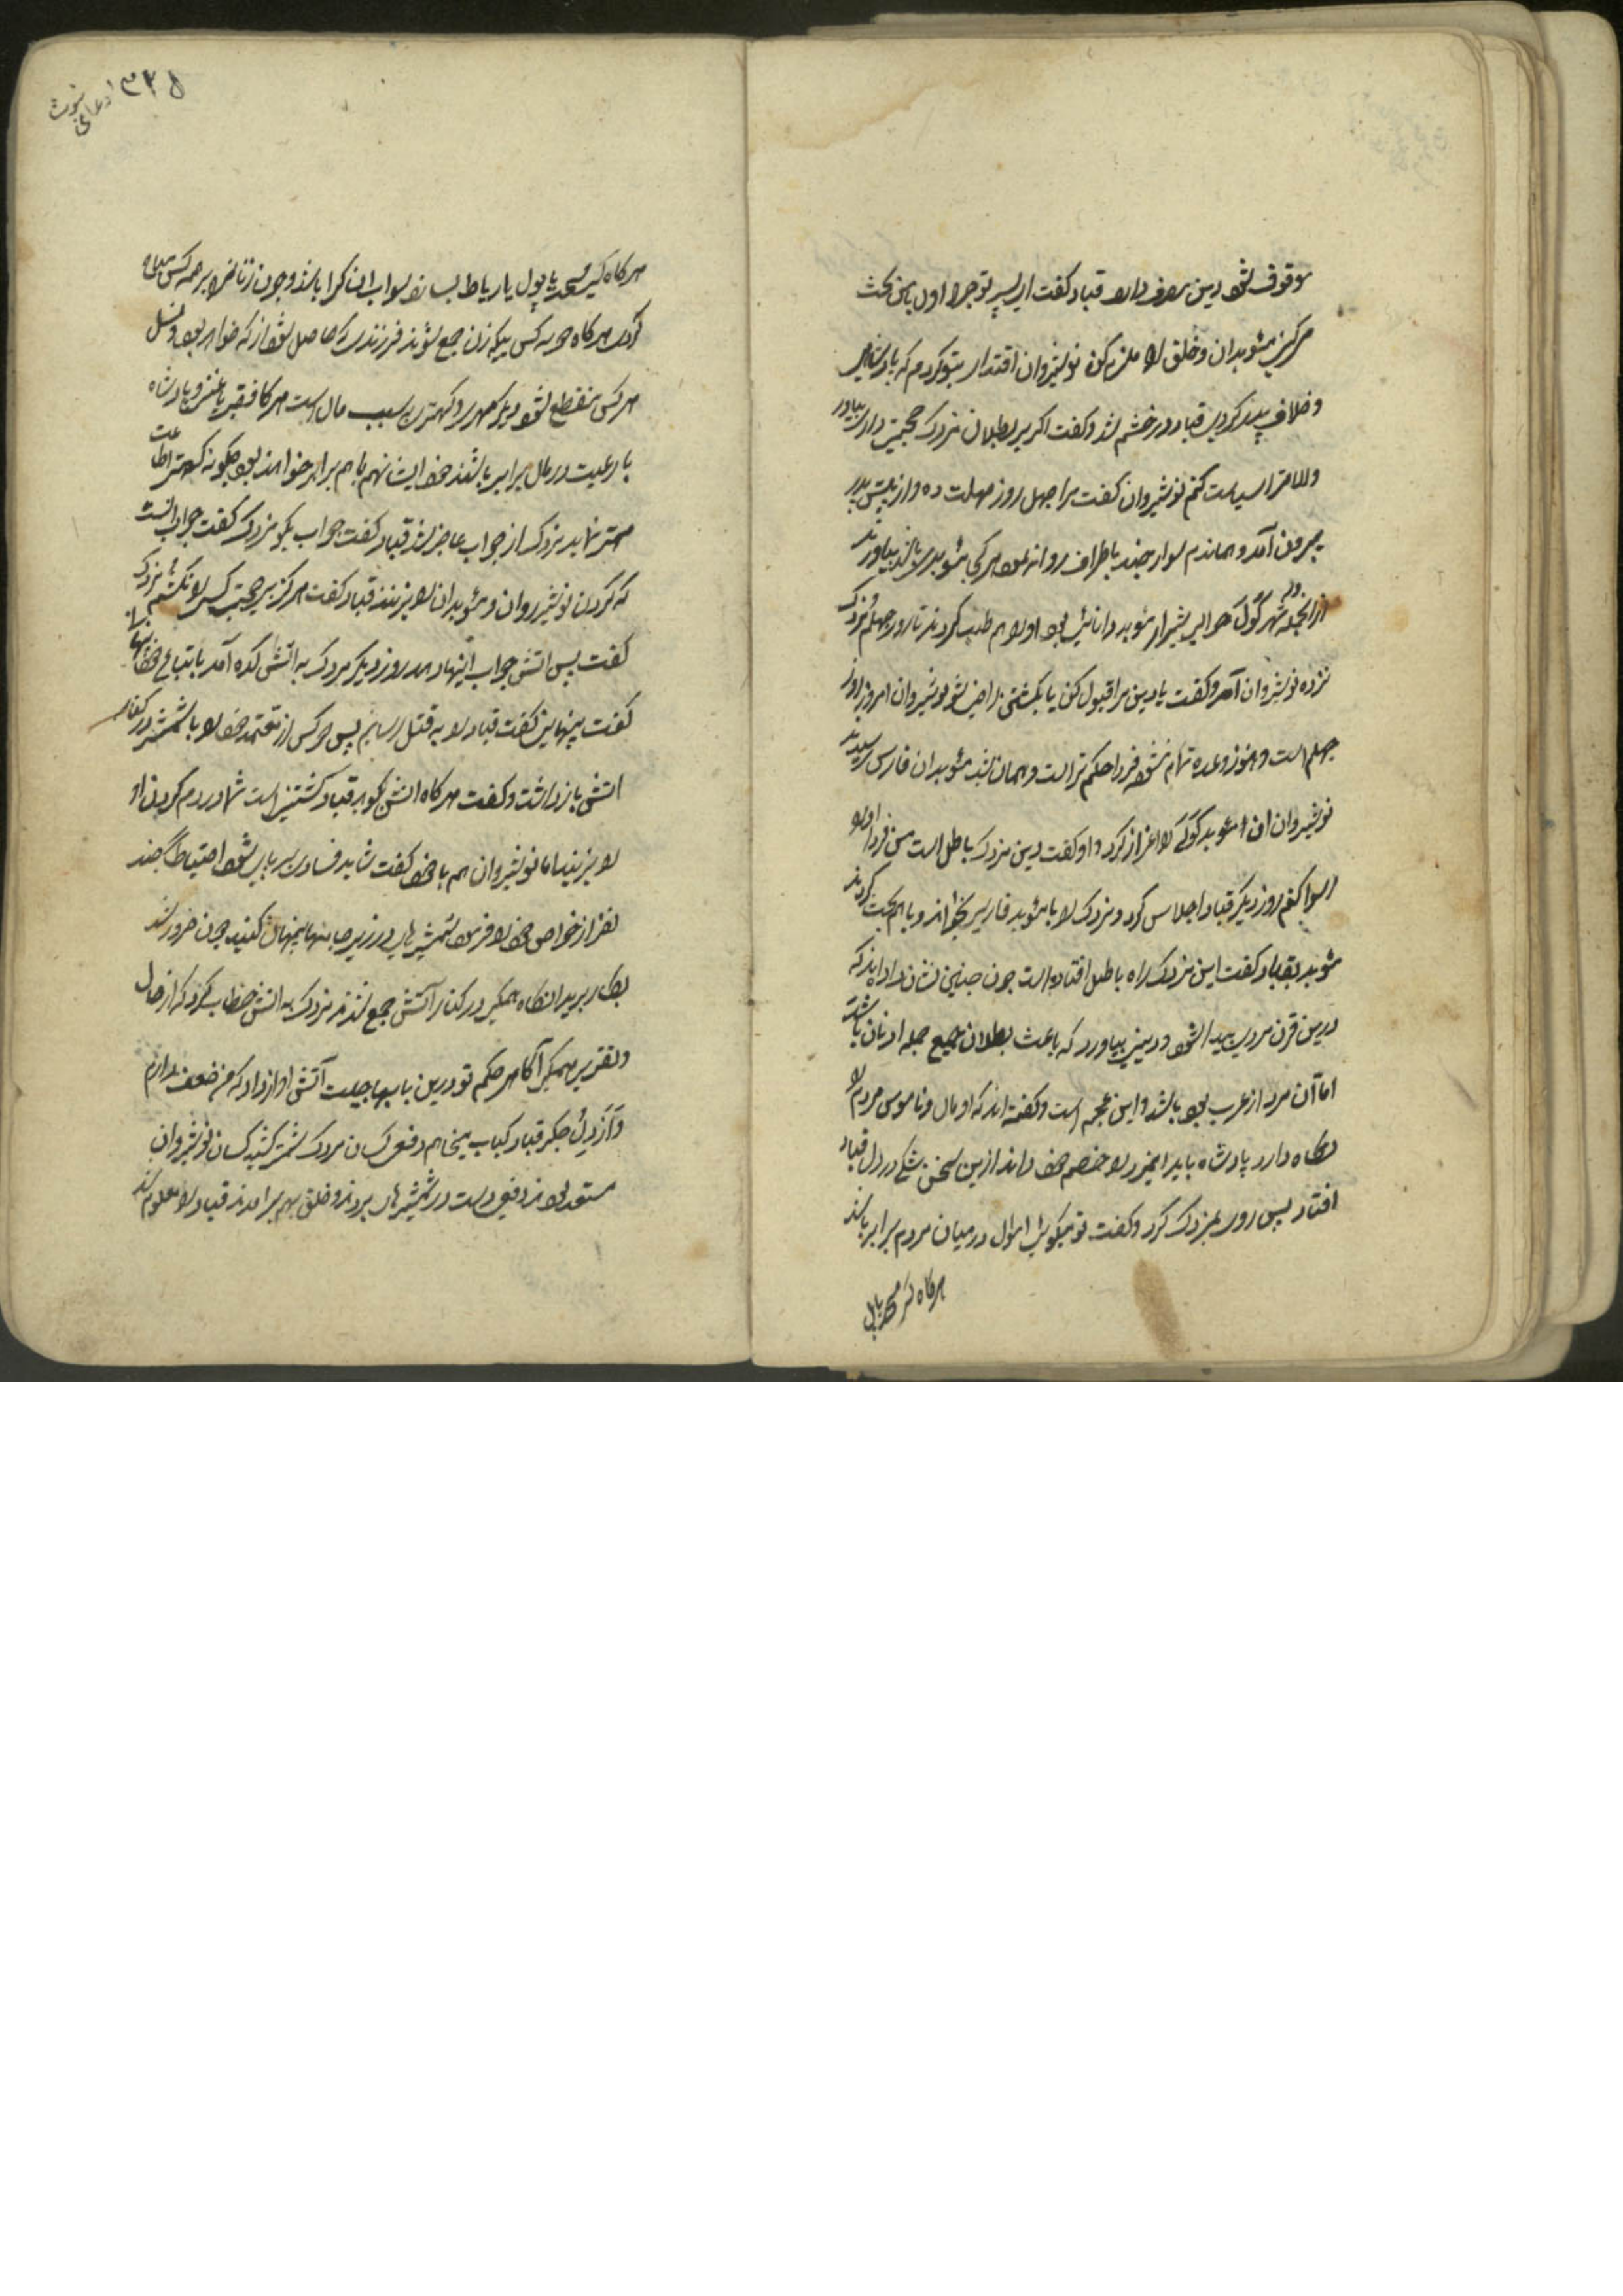 موقوف شود دین معروف دارد قباد کفت ای پسر تو چرا اول با من بحث
میکنی موبدان و خلق را ملزم کن نوشیروان اقتدا بتو کردم که پادشاهی
و خلاف پدر کردی قباد در خشم شد و کفت اکر بر بطلان مزدک حجتی داری بیاور
والا ترا سیاست کنم نوشیروان کفت مرا چهل روز مهلت ده و از پیش پدر
بیرون آمد و هماندم سوار چند باطراف روانه نمود هر کجا موبدی باشد بیاورند
از انجمله در شهر کول حوالی شیراز موبد دانائی بود او را هم طلب کردند تا روز چهلم مزدک
نزد نوشیروان آمد و کفت یا دین مرا قبول کن یا بکشتنی راضی شو نوشیروان امروز روز
چهلم است و هنوز وعده تمام نشده فردا حکم تراست و همان شب موبدان فارس رسیدند
نوشیروان ان موبد کول را اعزاز کرد و او کفت دین مزدک باطل است من فردا او را
رسوا کنم روز دیکر قباد اجلاس کرد و مزدک را با موبد فارسی بخواند و با هم بحث کردند
موبد بقباد کفت این مزدک راه باطل افتاده است چون چنین نشان داده اند که
درین قرن مردی پیدا شود و دینی بیاورد که باعث بطلان جمیع جمله ادیان باشد
اما آن مرد از عرب بود باشد و این عجم است و کفته اند که او مال و ناموس مردم را
نکاه دارد پادشاه باید اینمرد را خصم خود داند ازین سخن شکی در دل قباد
افتاد پس روی بمزدک کرد و کفت تو میکوئی اموال در میان مردم برابر باشد
هرکاه کسی مسجد یا پل
۳۲۵ ادعای نبوت
هرکاه کسی مسجد یا پول یا رباط بسازد ثواب ان کرا باشد و چون زنان را بر همه کس مباح
کردی هرکاه سه کس بیکه زن جمع شوند فرزندی که حاصل شود از که خواهد بود و نسل
هر کس منقطع شود دیکر مهتری و کهتری بسبب مال است هرکاه فقیر یا غنی و پادشاه
با رعیت در مال برابر باشند خدایشان هم با هم برابر خواهند بود چکونه کهتر اطاعت
مهتر نماید مزدک از جواب عاجز شد قباد کفت جواب بکو مزدک کفت جواب انست
که کردن نوشیروان و موبدان را بزنند قباد کفت هرکز بی حجت کسی را نکشتم مزدک
کفت پس اتش جواب اینها دهد روز دیکر مزدک به اتش کده آمد با تباع خود
کفت پنهانی کفت قباد را به قتل رسانم پس دو کس از معتمد خود را با شمشیر در کنار
اتش باز داشت و کفت هرکاه اتش بکوید قباد کشتنی است شما در دم کردن او
را بزنید اما نوشیروان هم با خود کفت شاید فسادی برپا شود احتیاطا چند
نفر از خواص خود را فرمود شمشیرهای در زیر جامه ها پنهان کنید چون ضرور شد
بکار برید انکاه همکی در کنار آتش جمع شدند مزدک به اتش خطاب کرد که از حال
و تقریر همکی آکاهی حکم تو درین بابها چیست آتش اواز داد که من ضعف ندارم
و از دل و جکر قباد کباب میخواهم دفعی کسان مزدک شمشیر کشیدند کسان نوشیروان
مستعد بودند دفعی دست در شمشیرها بردند و خلق بهم برامدند قباد را معلوم شد